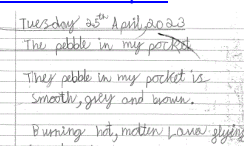 Tuesday 25th April, 2023
The pebble in my pocket
They pebble in my pocket is
smooth, grey and brown.
Burning hot, molten Lava